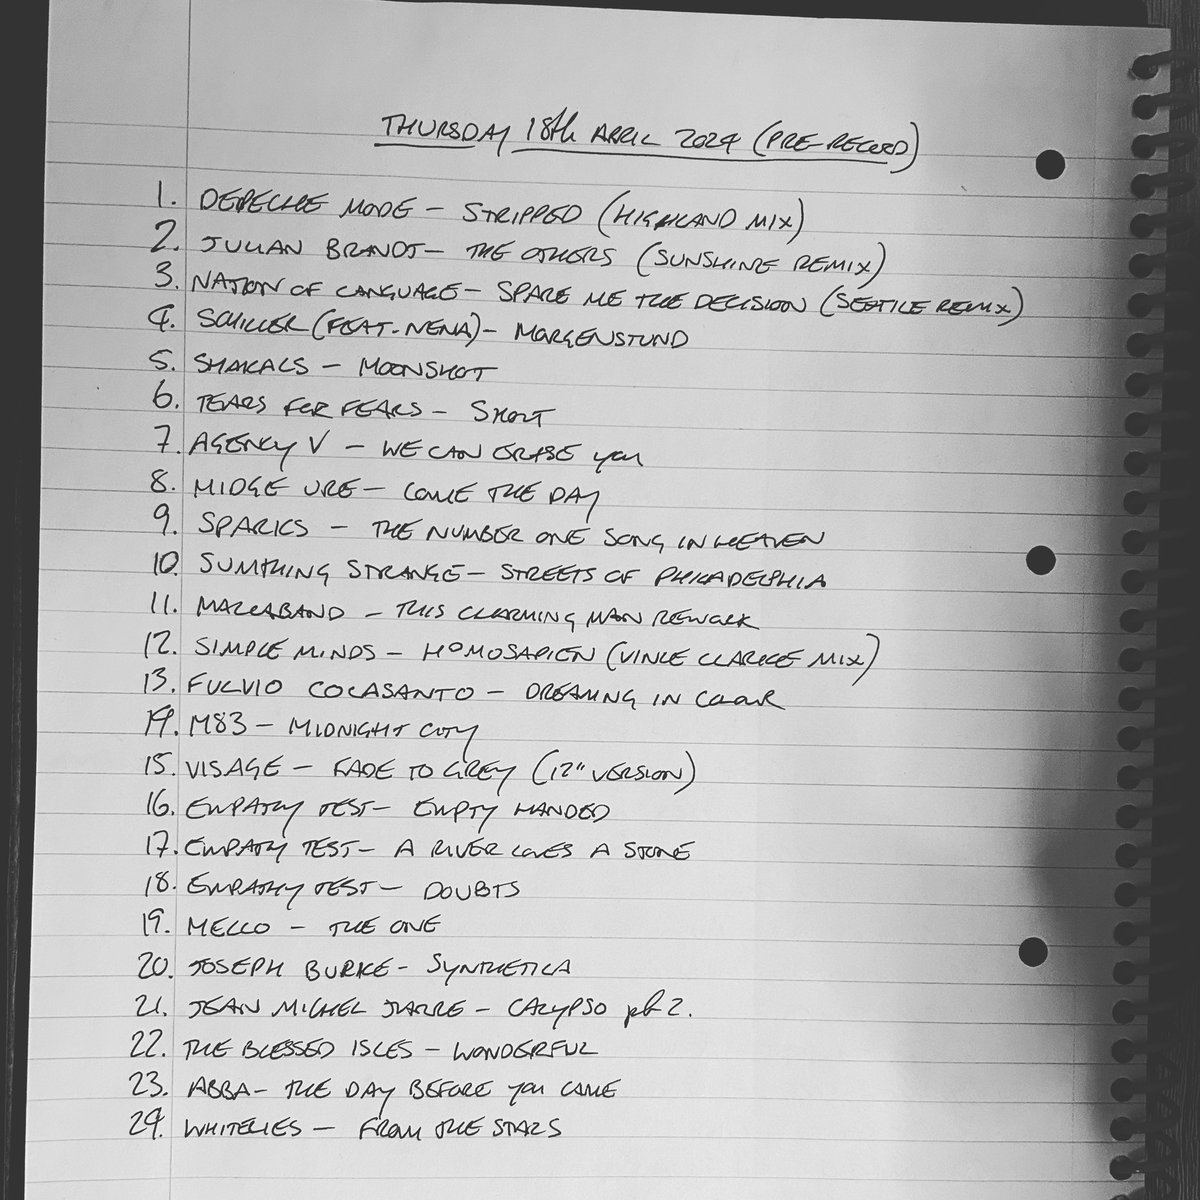 THURSDAY 18th APRIL 2024 (PRE-RECORD)
1. DEPECHE MODE - STRIPPED (HIGHLAND MIX)
2. JULIAN BRANDT - THE OTHERS (SUNSHINE REMIX)
3. NATION OF LANGUAGE - SPARE ME THE DECISION (SEATILE REMIX)
4. SCHILLER (FEAT. NENA) - MORGENSTUND
5. SHAKALS - MOONSHOT
6. TEARS FOR FEARS - SHOUT
7. AGENCY V - WE CAN ERASE YOU
8. MIDGE URE - COME THE DAY
9. SPARKS - THE NUMBER ONE SONG IN HEAVEN
10. SUMTHING STRANGE - STREETS OF PHILADELPHIA
11. MALLABAND - THIS CHARMING MAN REWORK
12. SIMPLE MINDS - HOMOSAPIEN (VINCE CLARKE MIX)
13. FULVIO COLASANTO - DREAMING IN COLOUR
14. M83 - MIDNIGHT CITY
15. VISAGE - FADE TO GREY (12" VERSION)
16. EMPATHY TEST - EMPTY HANDED
17. EMPATHY TEST - A RIVER LOVES A STONE
18. EMPATHY TEST - DOUBTS
19. MELLO - THE ONE
20. JOSEPH BURKE - SYNTHETICA
21. JEAN MICHEL JARRE - CALYPSO pt 2.
22. THE BLESSED ISLES - WONDERFUL
23. ABBA - THE DAY BEFORE YOU CAME
24. WHITELIES - FROM THE STARS